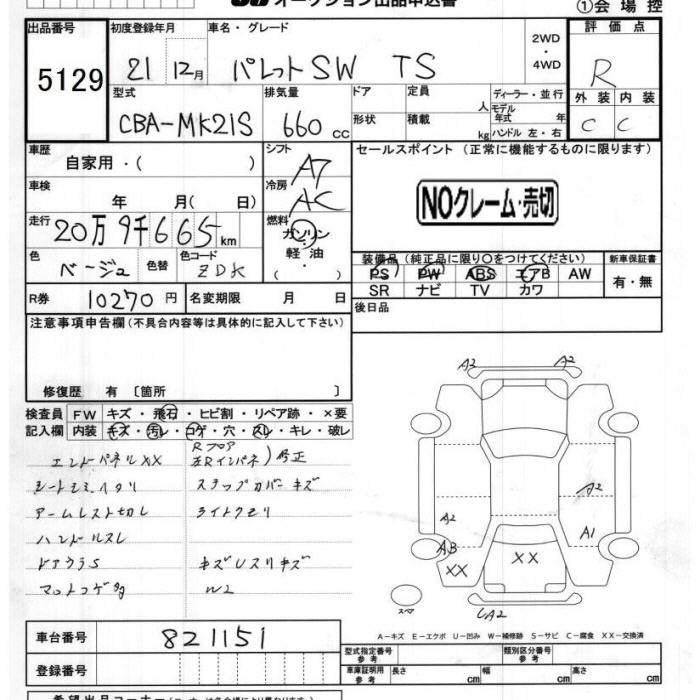 オークション出品申込書
①会場控
出品番号 初度登録年月 車名・グレード 2WD・4WD 評価点
5129 21 12月 パレットSW TS R
型式 排気量 ドア 定員 人 ディーラー・並行 外装 内装
CBA-MK21S 660cc 形状 積載 kg モデル年式 年 ハンドル 左・右 C C
車歴 シフト セールスポイント(正常に機能するものに限ります)
自家用・( ) A7
車検 冷房 NOクレーム・売切
年 月( 日) AC
走行 燃料
20万9千665km ガソリン・軽油・
色 色替 色コード 装備品(純正品に限り○をつけてください) 新車保証書
ベージュ ZDK PS PW ABS エアB AW 有・無
SR ナビ TV カワ
R券 10270円 名変期限 月 日 後日品
注意事項申告欄(不具合内容等は具体的に記入して下さい)
修復歴 有〔箇所 〕
検査員 FW キズ・飛石・ヒビ割・リペア跡・×要
記入欄 内装 キズ・汚レ・コゲ・穴・スレ・キレ・破レ
Rフロア
エンドパネルXX 左Rインパネ)修正
シートヒモヘタリ ステップカバーキズ
アームレスト切レ ライトクモリ
ハンドルスレ
ドアウラS キズUスリキズ
マットコゲ W2
A2 A2
A2 A2
A3 A1
XX XX
スペア A2
A-キズ E-エクボ U-凹み W-補修跡 S-サビ C-腐食 XX-交換済
車台番号 821151
型式指定番号 参考 類別区分番号 参考
登録番号 車庫証明用 参考 長さ cm 幅 cm 高さ cm
希望出品コーナー